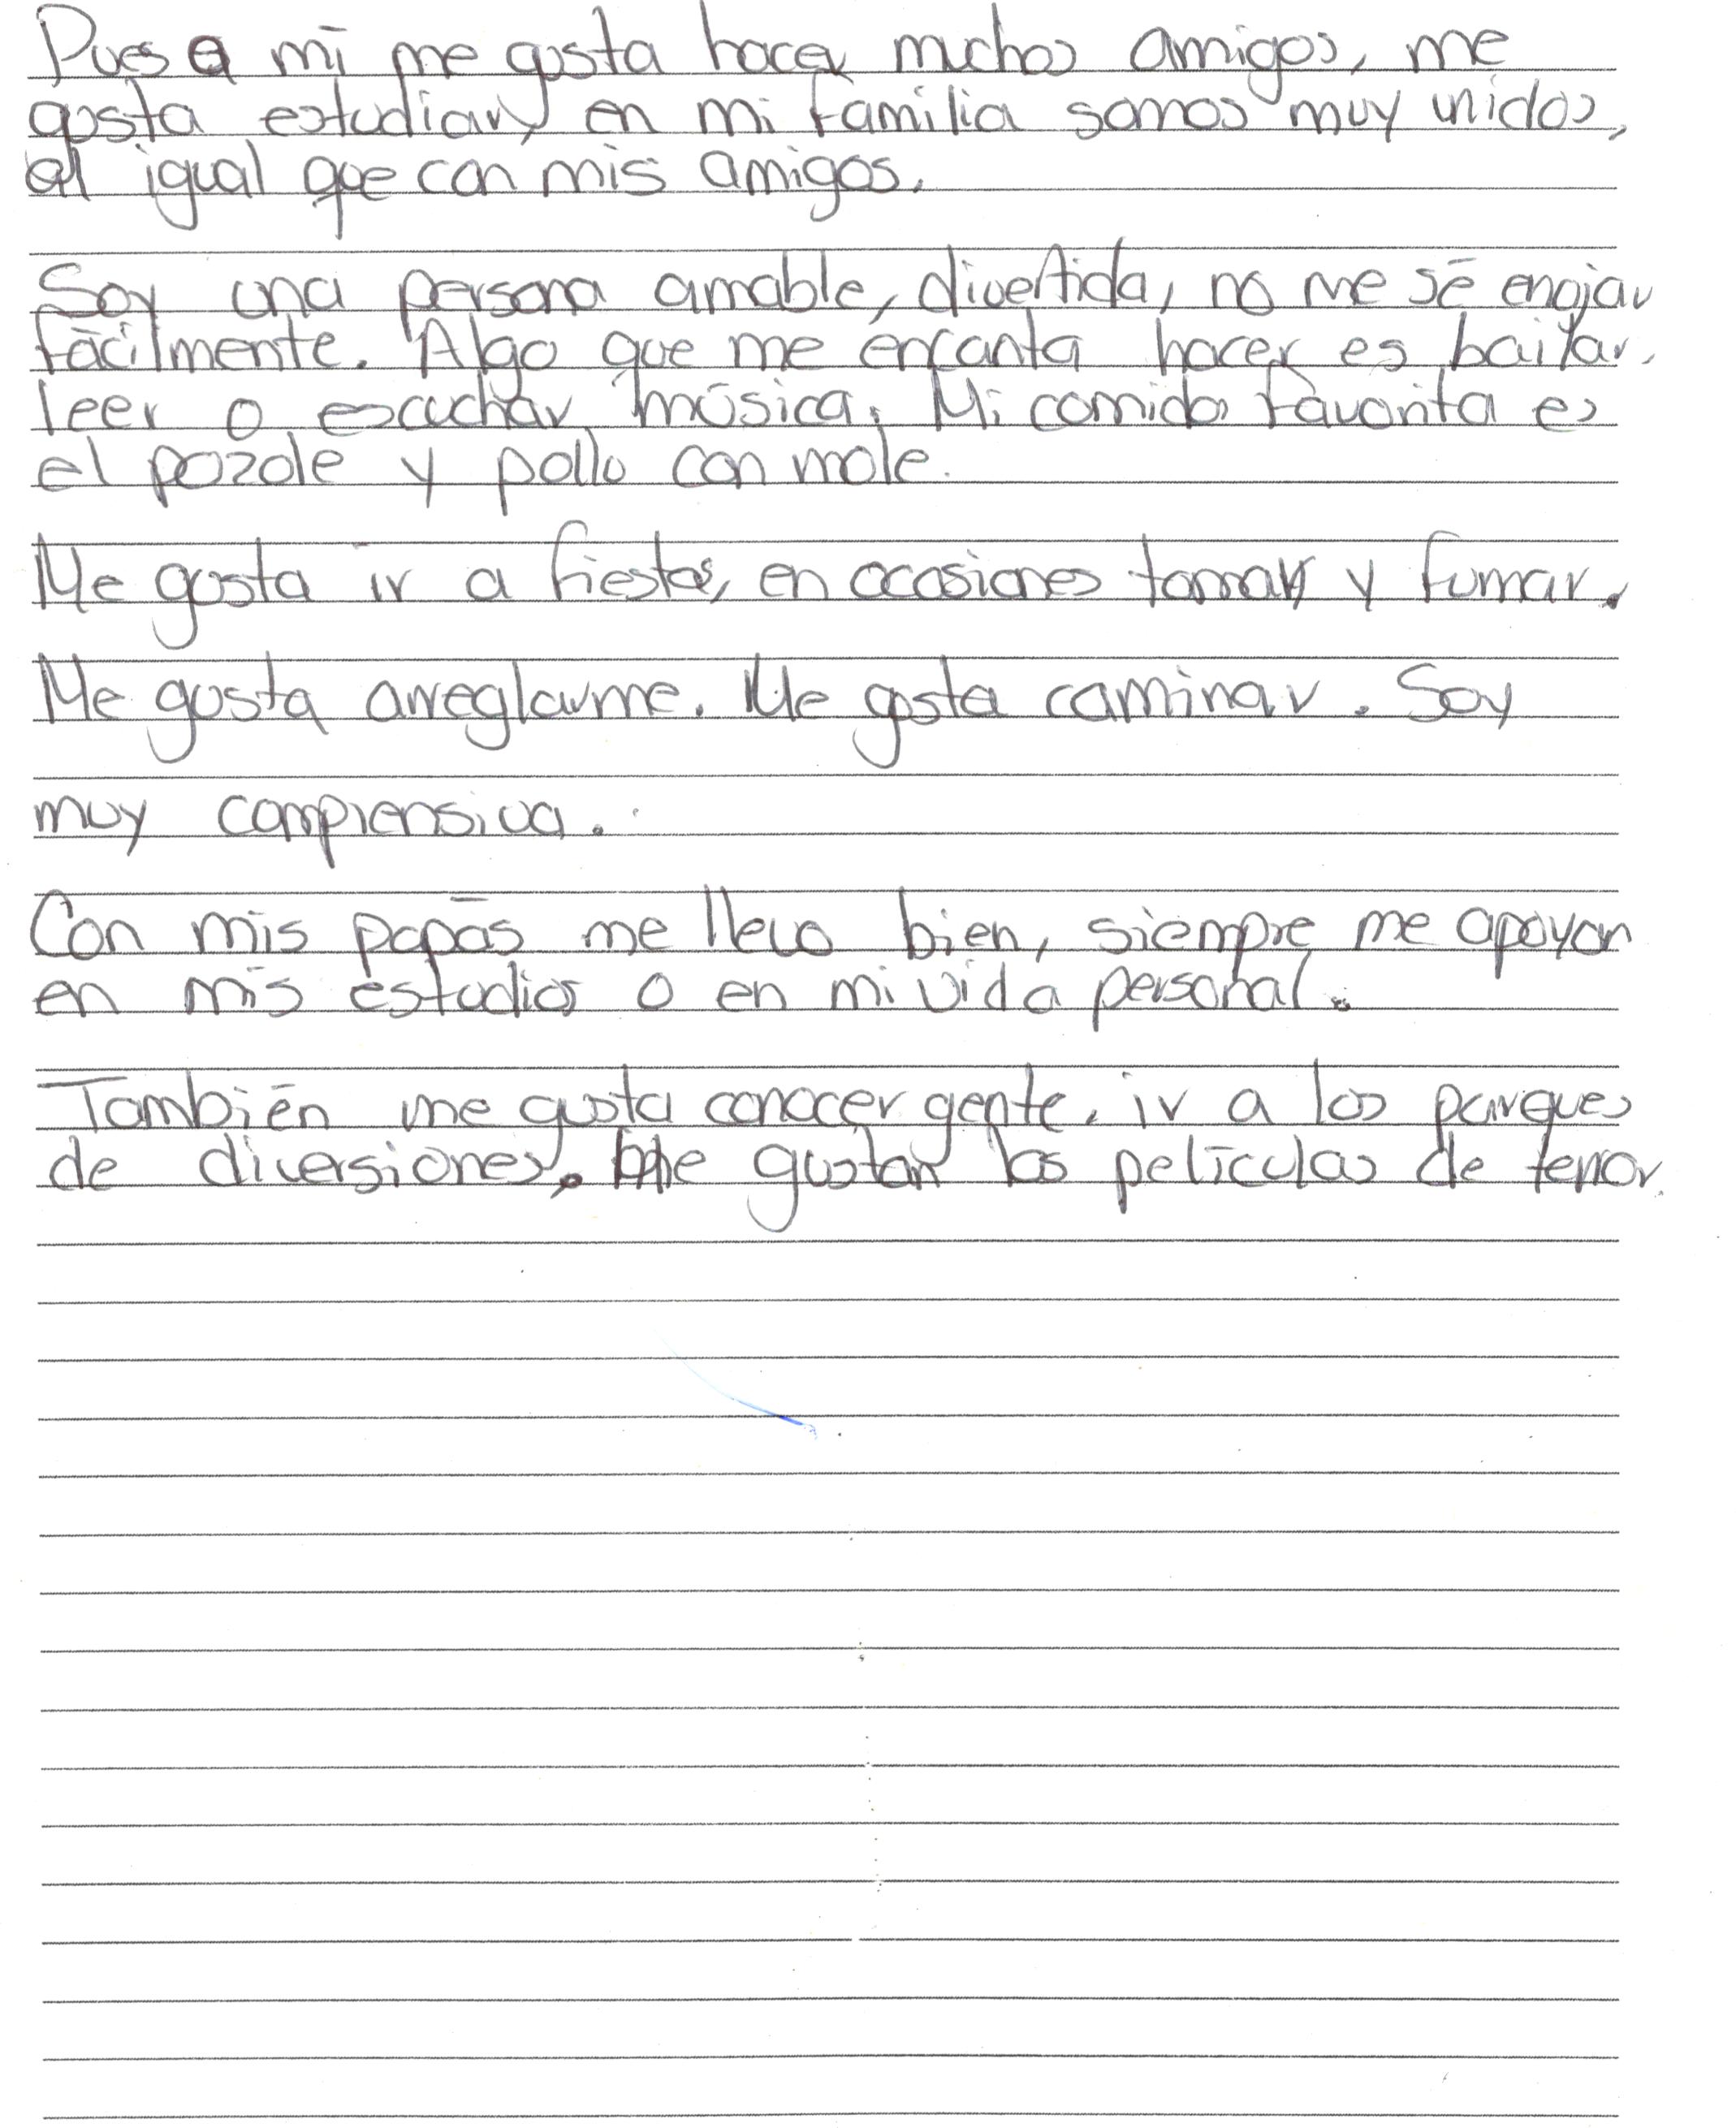 Pues a mí me gusta hacer muchos amigos, me
gusta estudiar, en mi familia somos muy unidos,
al igual que con mis amigos.
Soy una persona amable, divertida, no me sé enojar
fácilmente. Algo que me encanta hacer es bailar,
leer o escuchar música. Mi comida favorita es
el pozole y pollo con mole.
Me gusta ir a fiestas, en ocasiones tomar y fumar.
Me gusta arreglarme. Me gusta caminar. Soy
muy comprensiva.
Con mis papás me llevo bien, siempre me apoyan
en mis estudios o en mi vida personal.
También me gusta conocer gente, ir a los parques
de diversiones. Me gustan las películas de terror.